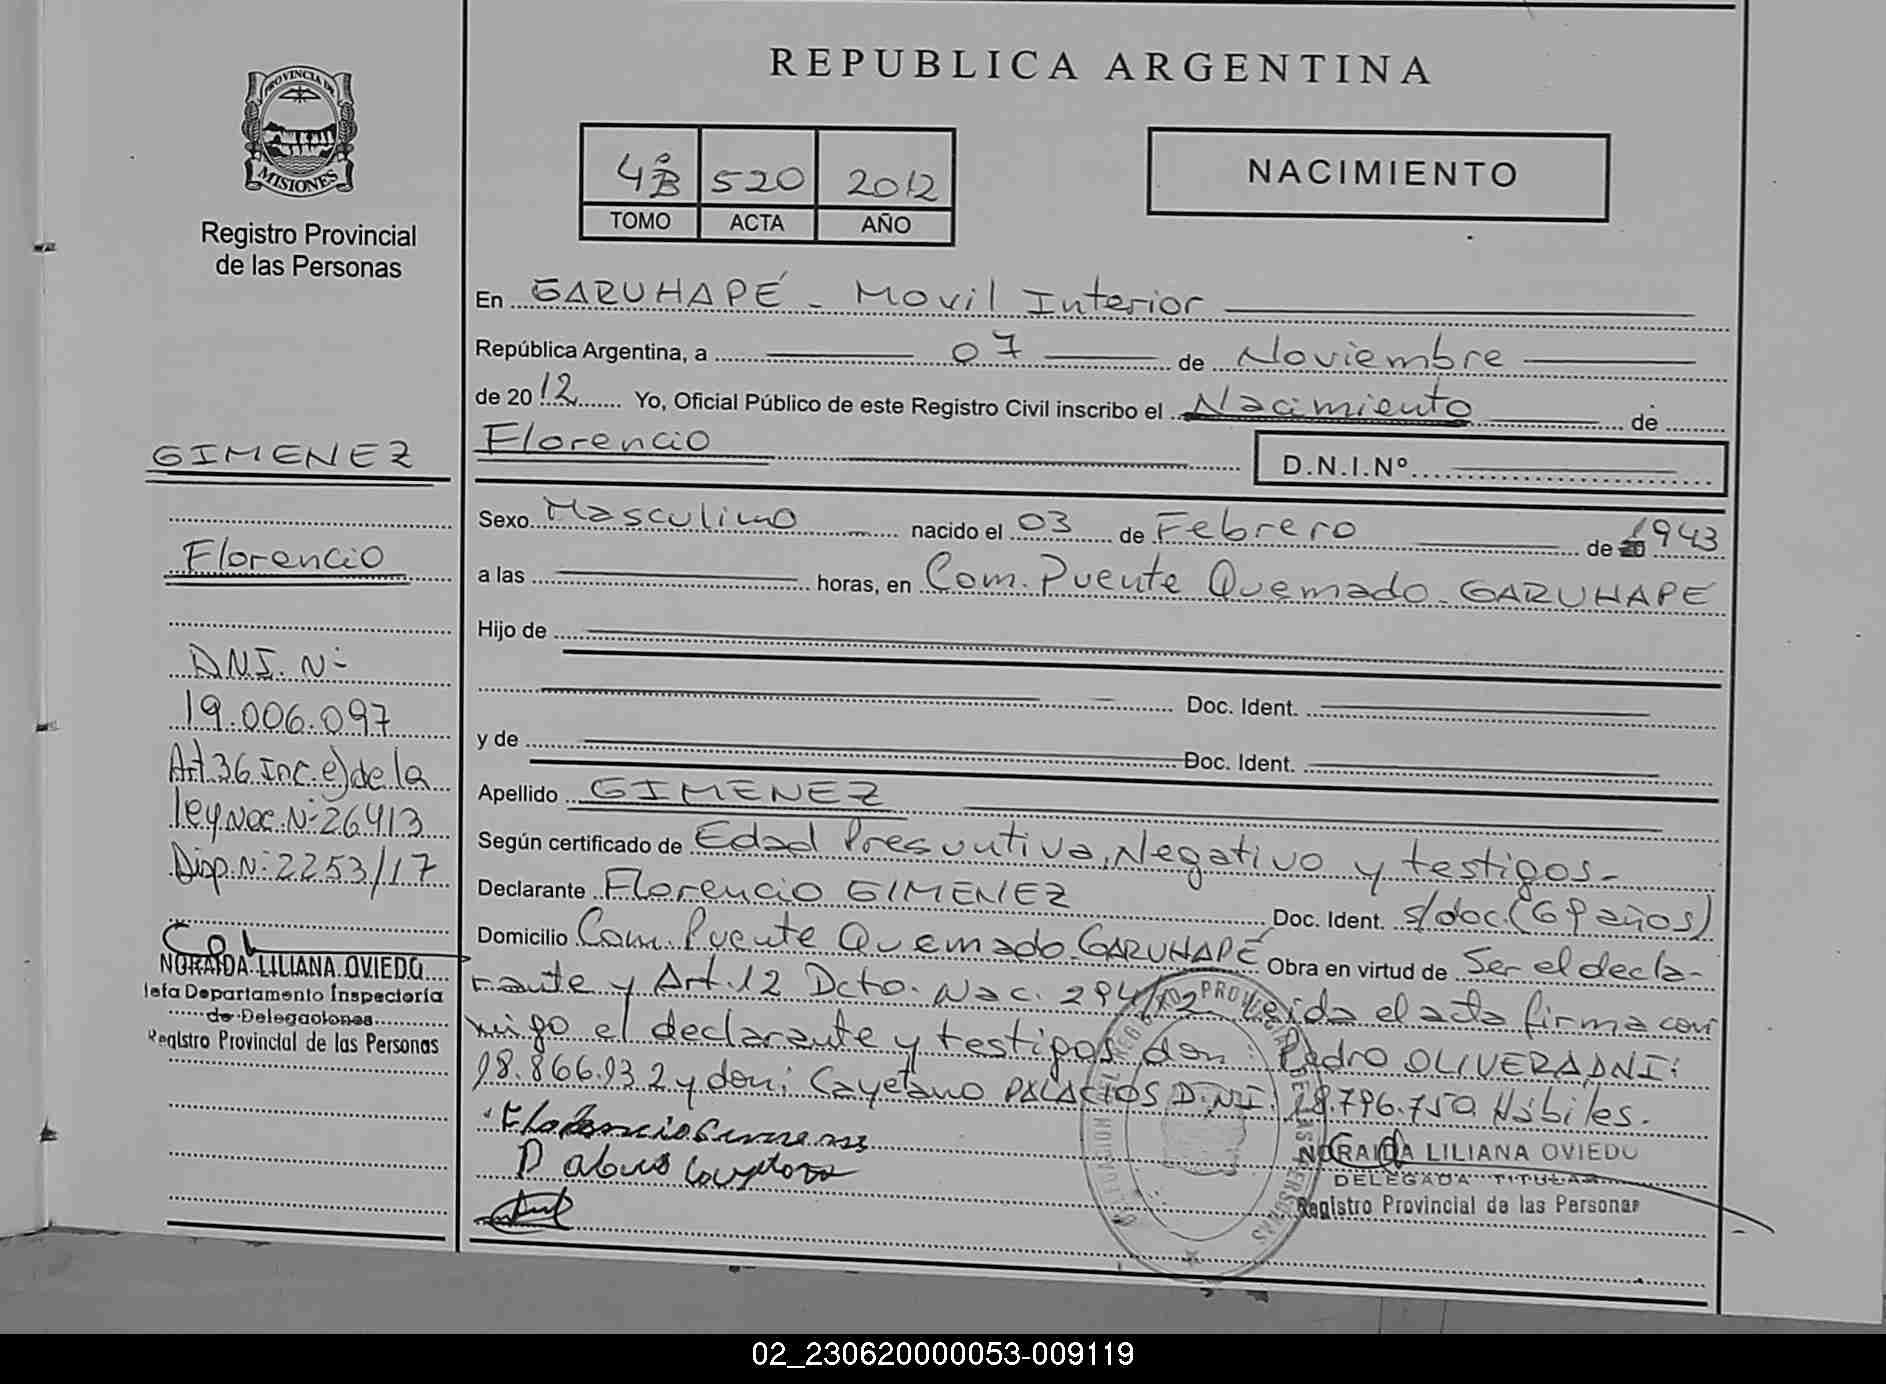 REPUBLICA ARGENTINA
PROVINCIA DE
MISIONES
Registro Provincial
de las Personas
4ºB 520 2012
TOMO ACTA AÑO
NACIMIENTO
En GARUHAPÉ - Movil Interior
República Argentina, a 07 de Noviembre
de 2012 Yo, Oficial Público de este Registro Civil inscribo el Nacimiento de
Florencio D.N.I.Nº
Sexo Masculino nacido el 03 de Febrero de 1943
a las horas, en Com. Puente Quemado - GARUHAPE
Hijo de
Doc. Ident.
y de Doc. Ident.
Apellido GIMENEZ
Según certificado de Edad Presuntiva, Negativo y testigos -
Declarante Florencio GIMENEZ Doc. Ident. s/doc. (69 años)
Domicilio Com. Puente Quemado - GARUHAPÉ Obra en virtud de Ser el decla-
rante y Art. 12 Dcto. Nac. 294/12 Leida el acta firma con
migo el declarante y testigos don: Pedro OLIVERA DNI:
18.866.932 y don: Cayetano PALACIOS D.NI. 18.796.750 Hábiles.
NORAIDA LILIANA OVIEDO
DELEGADA TITULAR
Registro Provincial de las Personas
GIMENEZ
Florencio
D.N.I. Nº
19.006.097
Art 36 Inc. e) de la
ley Nac. Nº 26413
Disp. Nº 2253/17
NORAIDA LILIANA OVIEDO
Jefa Departamento Inspectoría
de Delegaciones
Registro Provincial de las Personas
02_230620000053-009119